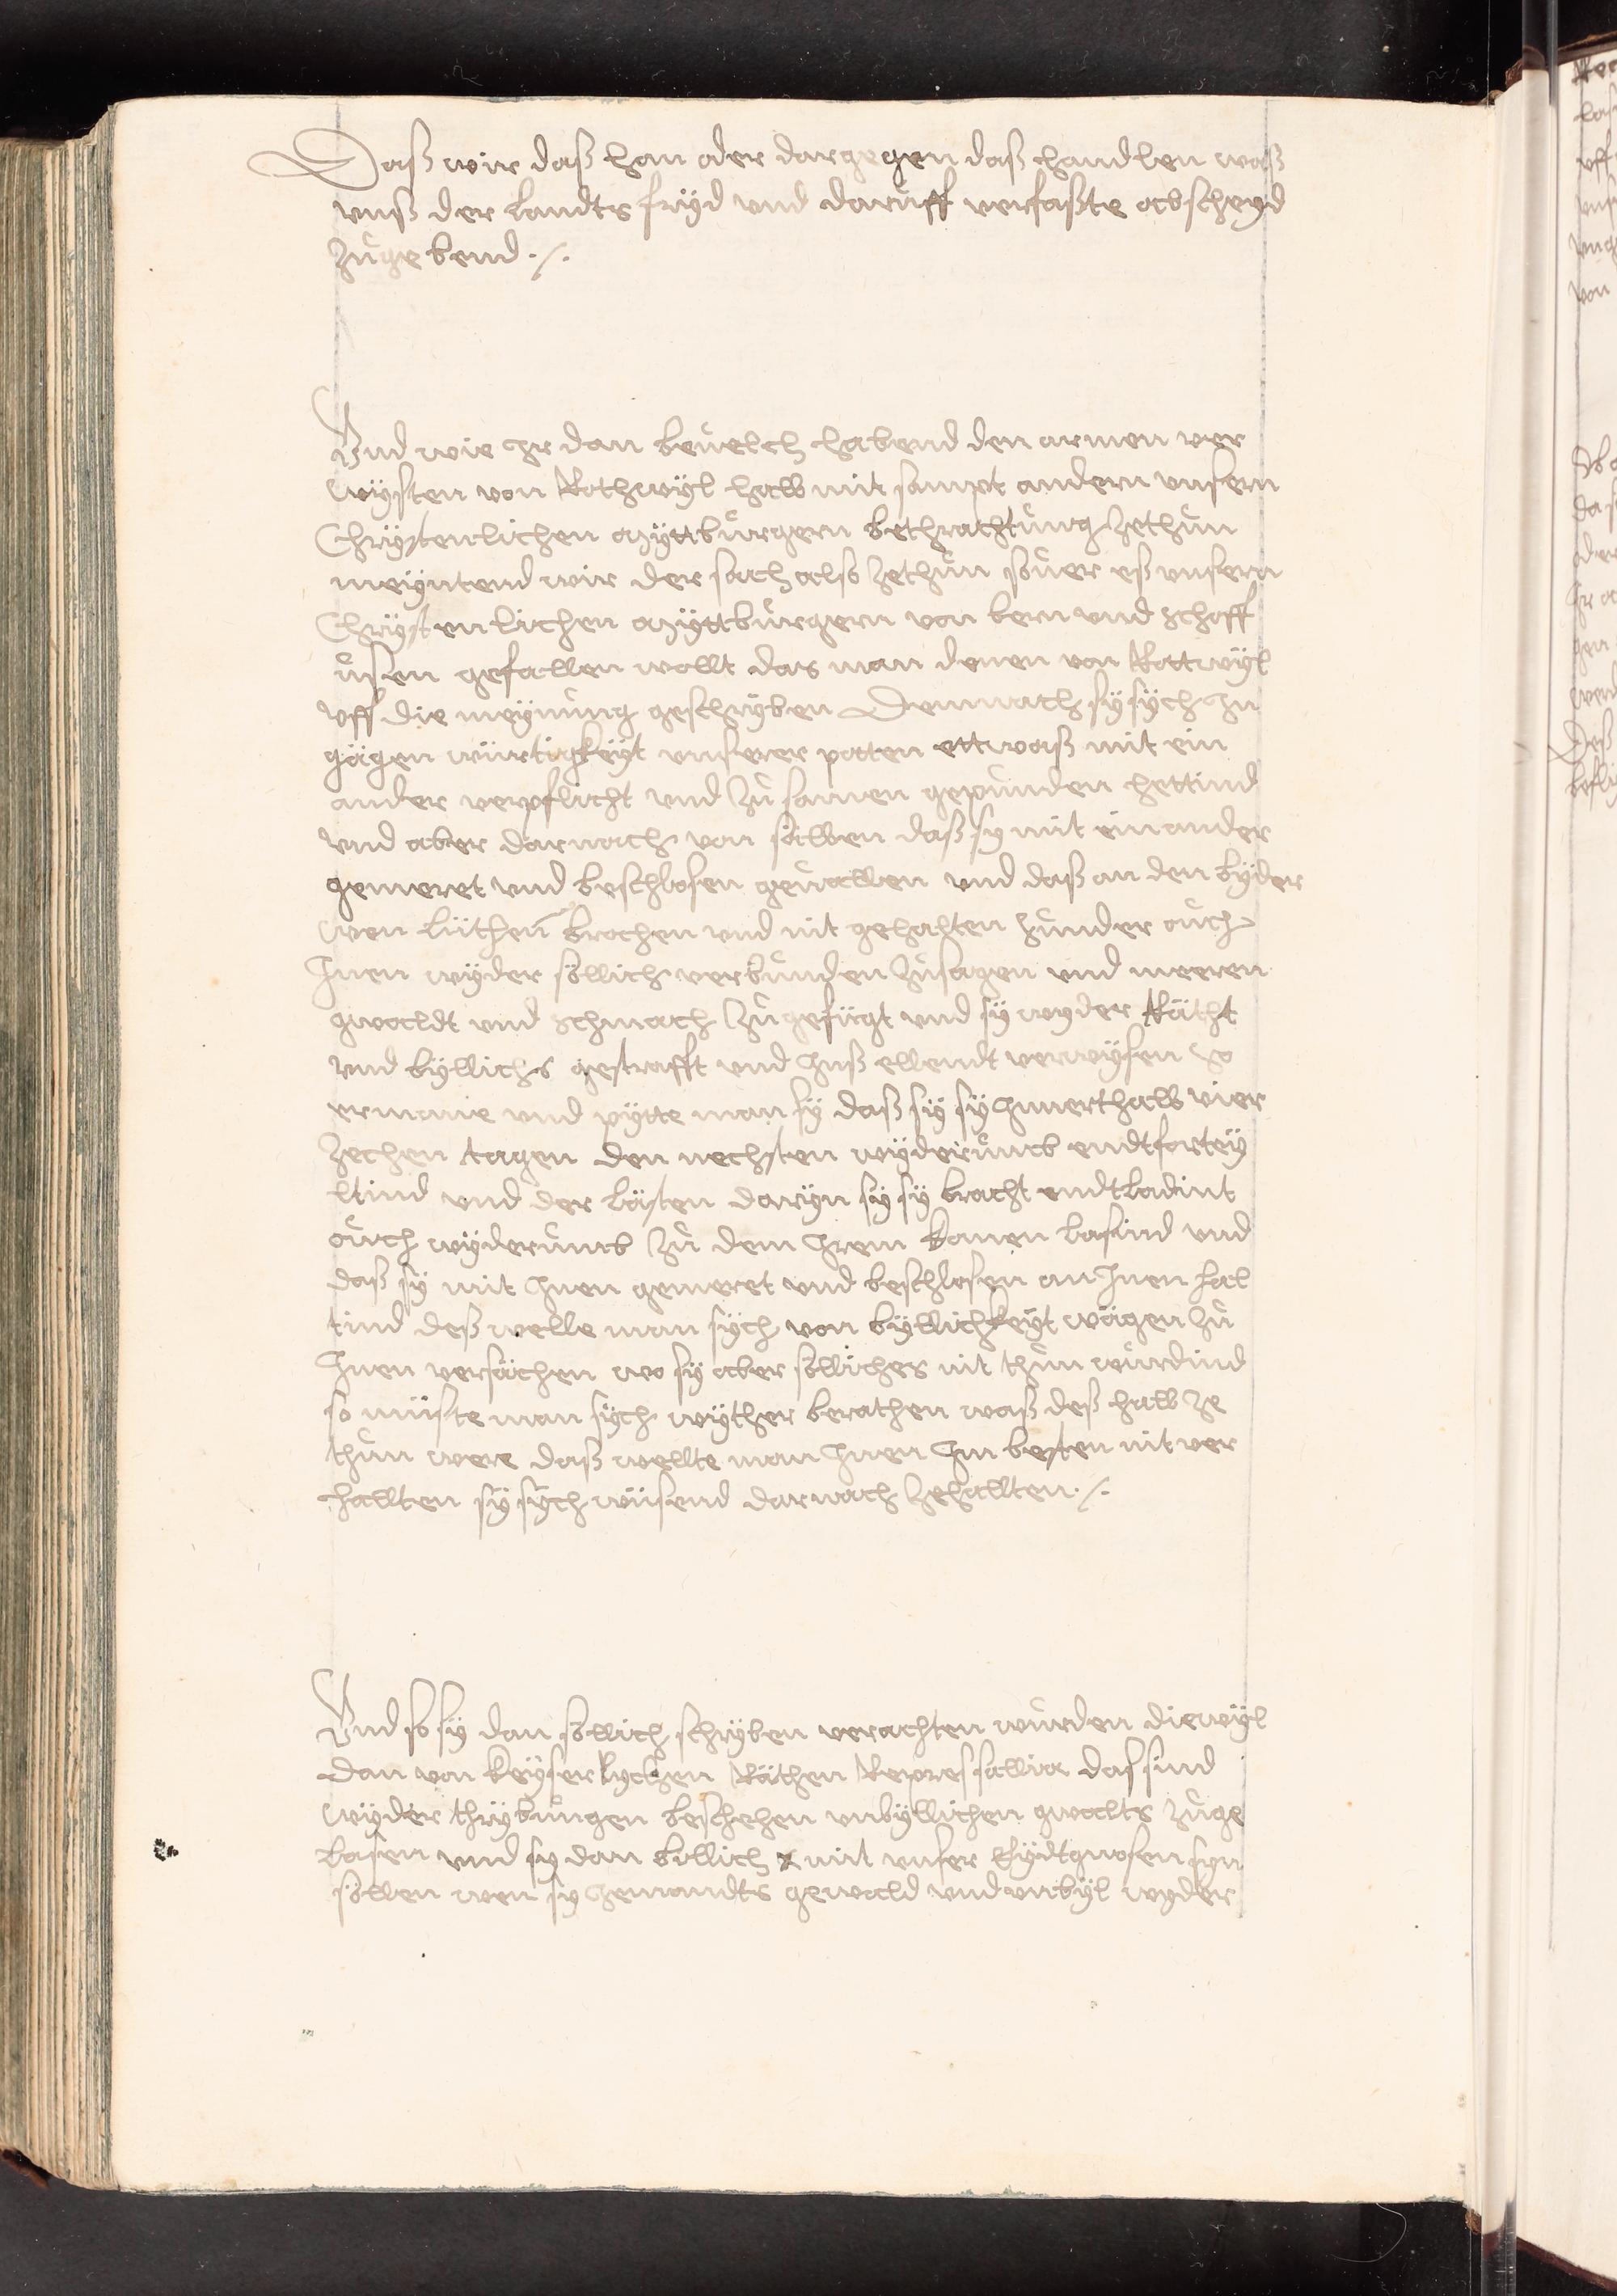 Daß wir daß han oder dargegen daß handlen waß
vnß der landts fryd vnd daruff verfaßte abscheyd
zůgebend ./.
Vnd wie Jr dan beuelch habend den armen ver
wysten von Rothwyl halb mit sampt andern vnsern
Chrÿstenlichen mÿttburgern bethrachtung zethůn
meÿntend wir der sach also zethůn souer eß vnsern
Chrÿstenlichen mÿttburgern von bern vnd schaff
usen gefallen wollt das man denen von Rottwÿl
vff die meÿnung geschryben Demnach sÿ sÿch Jn
gägen würtigkeÿt vnserer potten ettwaß mit ein
ander verpflicht vnd zů samen gepunden hettind
vnd aber darnach von söllben daß sy mit einander
gemeret vnd beschlosen geuallen vnd daß an den bÿder
wen lüthen brochen vnd nit gehalten sunder ouch
Jnen wÿder söllich verbunden zůsagen vnd meeren
gwalldt vnd schmach zůgefügt vnd sÿ wyder Rächt
vnd byllichs gestrafft vnd Jnß ellendt verwÿsen So
ermane vnd pÿtte man sÿ daß sÿ sÿ Jnnerthalb vier
zechen tagen den nechsten wÿderumb endtfortey
ltind vnd der lästen daryn sÿ sÿ bracht endtladint
ouch wÿderumb zů dem Jrem komen lasind vnd
daß sÿ mit Jnen gemeret vnd beschlosen an Jnen hal
tind deß welle man sÿch von byllichkeÿt wägen zů
Jnen versächen wo sÿ aber sölliches nit thůn wurdind
so müste man sÿch wÿther berathen waß deß halb ze
thůn were daß wellte man Jnen Jm besten nit ver
hallten sÿ sÿch wüsend darnach zehallten ./.
Vnd so sÿ dan söllich schrÿben verachten wurden diewÿl
dan von keÿserlychen Räthen Repressallia das sind
wÿder thrÿbungen beschehen vnbÿllichen gwalts zůge
lasen vnd sy dan billich mit vnser Eÿdtgnosen syn
söllen wen sy Jemandts gewald vnd vnbÿl wyder